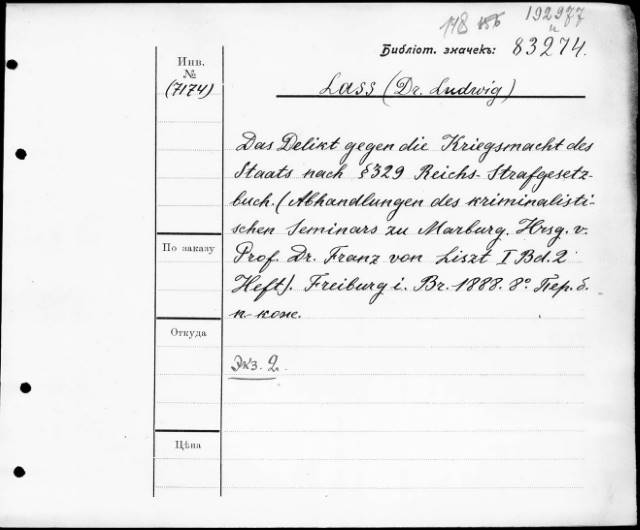 118 192977
Библіот. значекъ: 83274.
Инв.
№
(7174)
Lass (Dr. Ludwig)
Das Delikt gegen die Kriegsmacht des
Staats nach §329 Reichs-Strafgesetz-
buch. (Abhandlungen des kriminalisti-
schen Seminars zu Marburg. Hrsg. v.
Prof. Dr. Franz von Liszt I Bd. 2
Heft). Freiburg i. Br. 1888. 8° Пер. б.
п-коже.
По заказу
Откуда
Экз. 2.
Цѣна